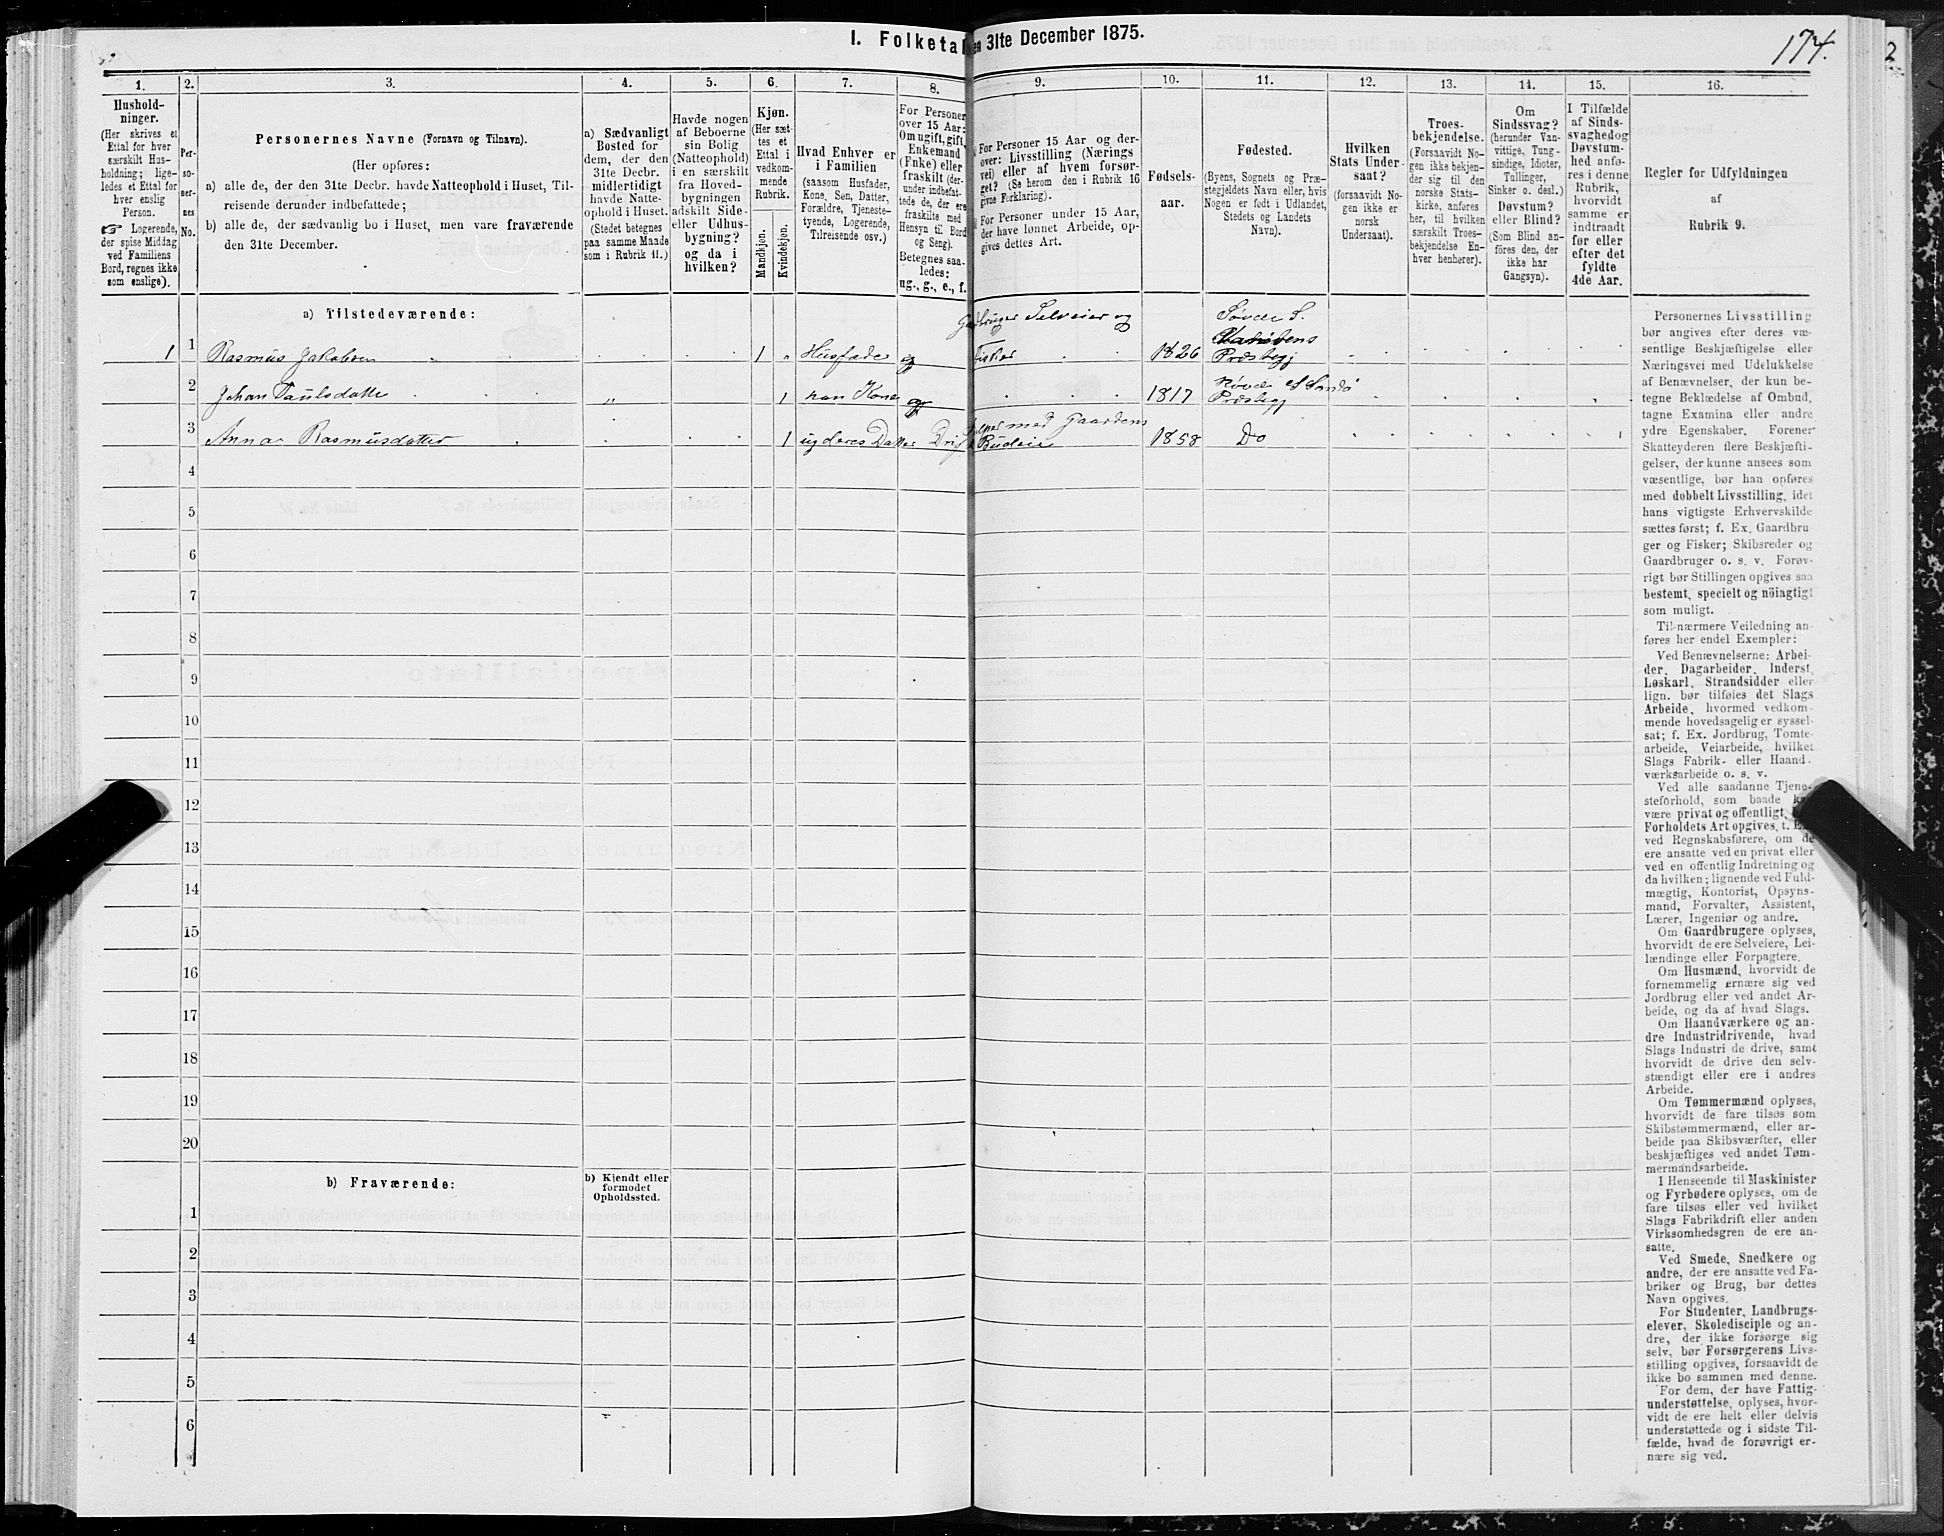 1. Folketal den 31te December 1875.
174.
2
1.
Hushold-
ninger.
(Her skrives et
Ettal for hver
særskilt Hus-
holdning; lige-
ledes et Ettal for
hver enslig
Person.
☞ Logerende,
der spise Middag
ved Familiens
Bord, regnes ikke
som enslige).
2.
Per-
so-
ner-
nes
No.
3.
Personernes Navne (Fornavn og Tilnavn).
(Her opføres:
a) alle de, der den 31te Decbr. havde Natteophold i Huset, Til-
reisende derunder indbefattede;
b) alle de, der sædvanlig bo i Huset, men vare fraværende
den 31te December.
4.
a) Sædvanligt
Bosted for
dem, der den
31te Decbr.
midlertidigt
havde Natte-
ophold i Huset.
(Stedet betegnes
paa samme Maade
som i Rubrik 11.)
5.
Havde nogen
af Beboerne
sin Bolig
(Natteophold)
i en særskilt
fra Hoved-
bygningen
adskilt Side-
eller Udhus-
bygning?
og da i
hvilken?
6.
Kjøn.
(Her sæt-
tes et
Ettal i
vedkom-
mende
Rubrik.
Mandkjøn.
Kvindekjøn.
7.
Hvad Enhver er
i Familien
(saasom Husfader,
Kone, Søn, Datter,
Forældre, Tjeneste-
tyende, Logerende,
Tilreisende osv.)
8.
For Personer
over 15 Aar:
Om ugift, gift,
Enkemand
(Enke) eller
fraskilt (der-
under indbefat-
tede de, der ere
fraskilte med
Hensyn til Bord
og Seng).
Betegnes saa-
ledes:
ug., g., e., f.
9.
For Personer 15 Aar og der-
over: Livsstilling (Nærings
vei) eller af hvem forsør-
get? (Se herom den i Rubrik 16
givne Forklaring).
For Personer under 15 Aar,
der have lønnet Arbeide, op-
gives dettes Art.
10.
Fødsels-
aar.
11.
Fødested.
(Byens, Sognets og Præ-
stegjeldets Navn eller, hvis
Nogen er født i Udlandet,
Stedets og Landets
Navn).
12.
Hvilken
Stats Under-
saat?
(forsaavidt No-
gen ikke er
norsk
Undersaat).
13.
Troes-
bekjendelse.
(Forsaavidt No-
gen ikke bekjen-
der sig til den
norske Stats-
kirke, anføres
her, til hvilken
særskilt Troes-
bekjendelse En-
hver henhører).
14.
Om
Sindssvag?
(herunder Van-
vittige, Tung-
sindige, Idioter,
Tullinger,
Sinker o. desl.)
Døvstum?
eller Blind?
(Som Blind an-
føres den, der
ikke har
Gangsyn).
15.
I Tilfælde
af Sinds-
svaghed og
Døvstum-
hed anfø-
res i denne
Rubrik,
hvorvidt
samme er
indtraadt
før eller
efter det
fyldte
4de Aar.
16.
Regler for Udfyldningen
af
Rubrik 9.
a) Tilstedeværende:
1 1 Rasmus Jakobsen 1 Husfader g Gaardbruger Selveier og Fisker 1826 Søvde S. Præstegj
2 Johan Paulsdatte 1 han Kone g 1817 Søvde S Sandø Præstegj
3 Anna Rasmusdatter 1 ug deres Datter Hjelper med Gaardens Drift Budeie 1858 Do
4
5
6
7
8
9
10
11
12
13
14
15
16
17
18
19
20
b) Fraværende:
b) Kjendt eller
formodet
Opholdssted.
1
2
3
4
5
6
Personernes Livsstilling
bør angives efter deres væ-
sentlige Beskjæftigelse eller
Næringsvei med Udelukkelse
af Benævnelser, der kun be-
tegne Beklædelse af Ombud,
tagne Examina eller andre
ydre Egenskaber. Forener
Skatteyderen flere Beskjæfti-
gelser, der kunne ansees som
væsentlige, bør han opføres
med dobbelt Livsstilling, idet
hans vigtigste Erhvervskilde
sættes først; f. Ex. Gaardbru
ger og Fisker; Skibsreder og
Gaardbruger o. s. v. Forøv-
rigt bør Stillingen opgives saa
bestemt, specielt og nøiagtigt
som muligt.
Til nærmere Veiledning an-
føres her endel Exempler:
Ved Benævnelserne: Arbei-
der, Dagarbeider, Inderst,
Løskarl, Strandsidder eller
lign. bør tilføies det Slags
Arbeide, hvormed vedkom-
mende hovedsagelig er syssel-
sat; f. Ex. Jordbrug, Tomte-
arbeide, Veiarbeide, hvilket
Slags Fabrik- eller Haand
værksarbeide o. s. v.
Ved alle saadanne Tjene-
steforhold, som baade
være privat og offentligt,
Forholdets Art opgives, t.
ved Regnskabsførere, om de
ere ansatte ved en privat eller
ved en offentlig Indretning og
da hvilken; lignende ved Fuld-
mægtig, Kontorist, Opsyns-
mand, Forvalter, Assistent,
Lærer, Ingeniør og andre.
Om Gaardbrugere oplyses,
hvorvidt de ere Selveiere, Lei-
lændinge eller Forpagtere.
Om Husmænd, hvorvidt de
fornemmelig ernære sig ved
Jordbrug eller ved andet Ar-
beide, og da af hvad Slags.
Om Haandværkere og an-
dre Industridrivende, hvad
Slags Industri de drive, samt
hvorvidt de drive den selv-
stændigt eller ere i andres
Arbeide.
Om Tømmermænd oplyses,
hvorvidt de fare tilsøs som
Skibstømmermænd, eller ar-
beide paa Skibsværfter, eller
beskjæftiges ved andet Tøm-
mermandsarbeide.
I Henseende til Maskinister
og Fyrbødere oplyses, om de
fare tilsøs eller ved hvilket
Slags Fabrikdrift eller anden
Virksomhedsgren de ere an-
satte.
Ved Smede, Snedkere og
andre, der ere ansatte ved Fa-
briker og Brug, bør dettes
Navn opgives.
For Studenter, Landbrugs-
elever, Skoledisciple og an-
dre, der ikke forsørge sig
selv, bør Forsørgerens Livs-
stilling opgives, forsaavidt de
ikke bo sammen med denne.
For dem, der have Fattig-
understøttelse, oplyses, hvor-
vidt de ere helt eller delvis
understøttede og i sidste Til-
fælde, hvad de forøvrigt er-
nære sig ved.